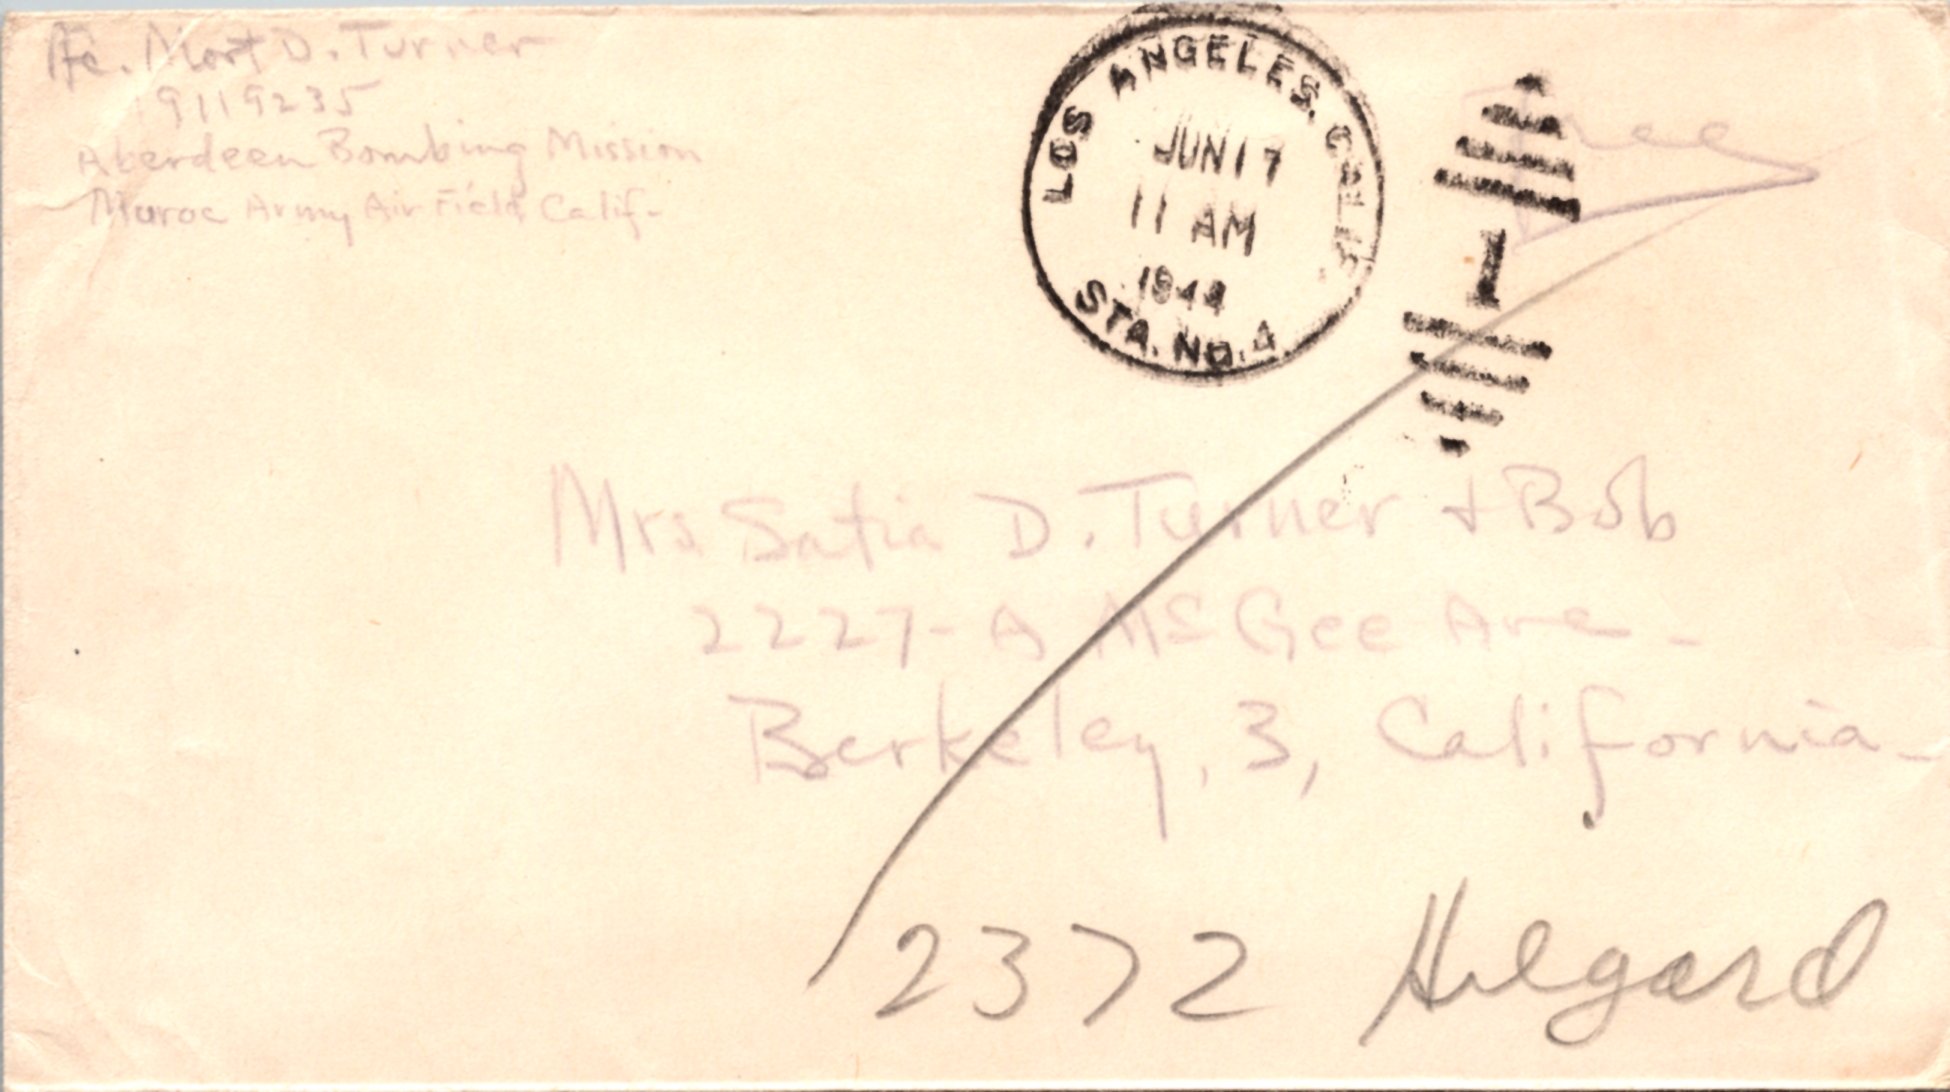 Pfc. Mort D. Turner
19119235
Aberdeen Bombing Mission
Muroc Army Air Field Calif-
LOS ANGELES, CALIF.
JUN 17
11 AM
1944
STA. NO. 4
1
Free
Mrs Satia D. Turner + Bob
2227-A McGee Ave-
Berkeley, 3, California-
2372 Hilgard